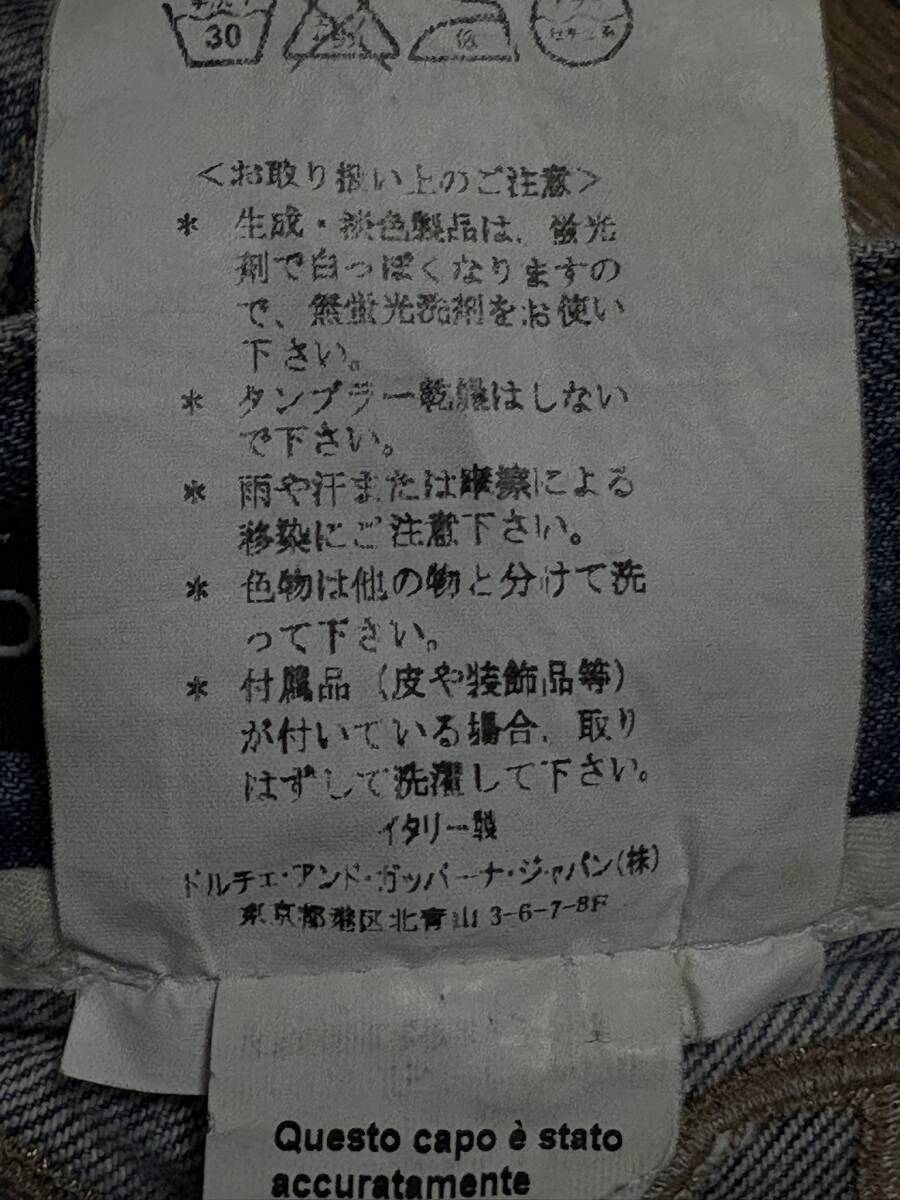 30
低
<お取り扱い上のご注意>
* 生成・淡色製品は、蛍光
剤で白っぽくなりますの
で、無蛍光洗剤をお使い
下さい。
* タンブラー乾燥はしない
で下さい。
* 雨や汗または摩擦による
移染にご注意下さい。
* 色物は他の物と分けて洗
って下さい。
* 付属品(皮や装飾品等)
が付いている場合、取り
はずして洗濯して下さい。
イタリー製
ドルチェ・アンド・ガッバーナ・ジャパン(株)
東京都港区北青山 3-6-7-8F
Questo capo è stato
accuratamente